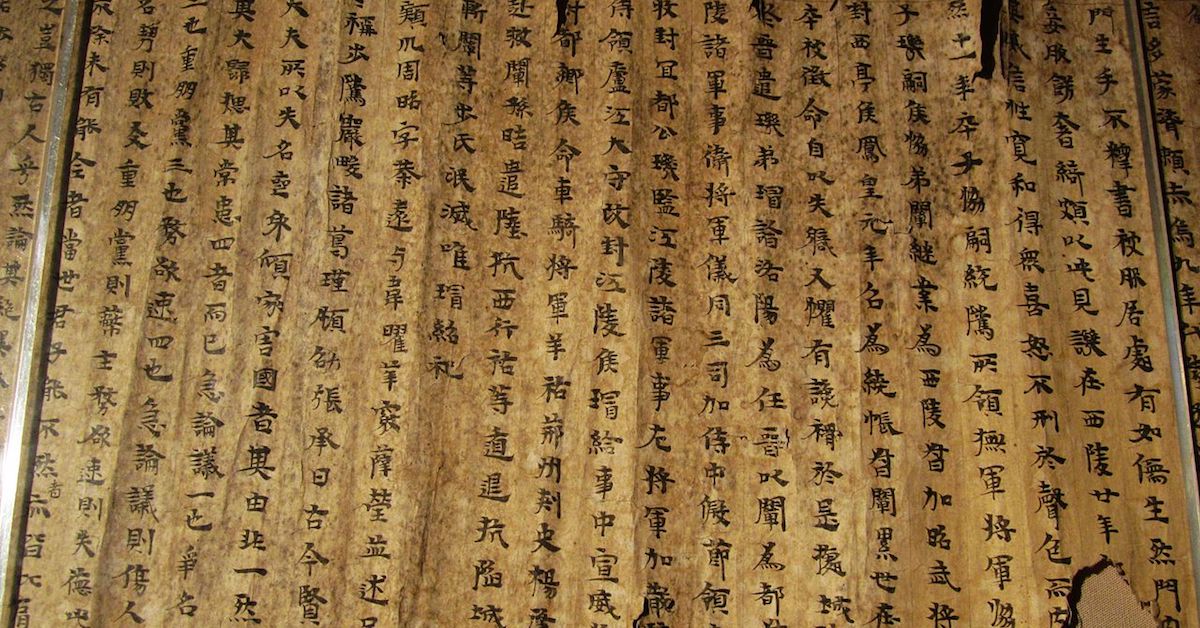 言多蒙濟賴赤烏九年代
門生手不釋書被服居處有如儒生然門內
妾服飾奢綺頗以此見譏在西陵廿年
信性寬和得眾喜怒不刑於聲色而內
然十一年卒子協嗣統騭所領撫軍將軍協
子璣嗣侯協弟闡繼業為西陵督加昭武將
封西亭侯鳳皇元年召為繞帳督闡累世在
卒被徵命自以失職又懼有讒禍於是據城
降晉遣璣弟璿詣洛陽為任晉以闡為都
陵諸軍事衛將軍儀同三司加侍中假節領
牧封宜都公璣監江陵諸軍事左將軍加散
侍領廬江太守改封江陵侯璿給事中宣威
封都鄉侯命車騎將軍羊祜荊州刾史楊肇
赴救闡孫晧遣陸抗西行祜等遁退抗陷城
斬闡等步氏泯滅唯璿紹祀
潁川周昭字恭遠与韋曜華覈薛瑩並述吳
稱步騭嚴畯諸葛瑾顧劭張承曰古今賢
大夫所以失名喪身傾家害國者其由非一然
其大歸揔其常患四者而已急論議一也爭名
二也重朋黨三也務欲速四也急論議則傷人
名勢則敗友重朋黨則蔽主務欲速則失德此
不除未有能全者當世君子能不然者亦皆比肩
之豈獨古人乎然論其絕異